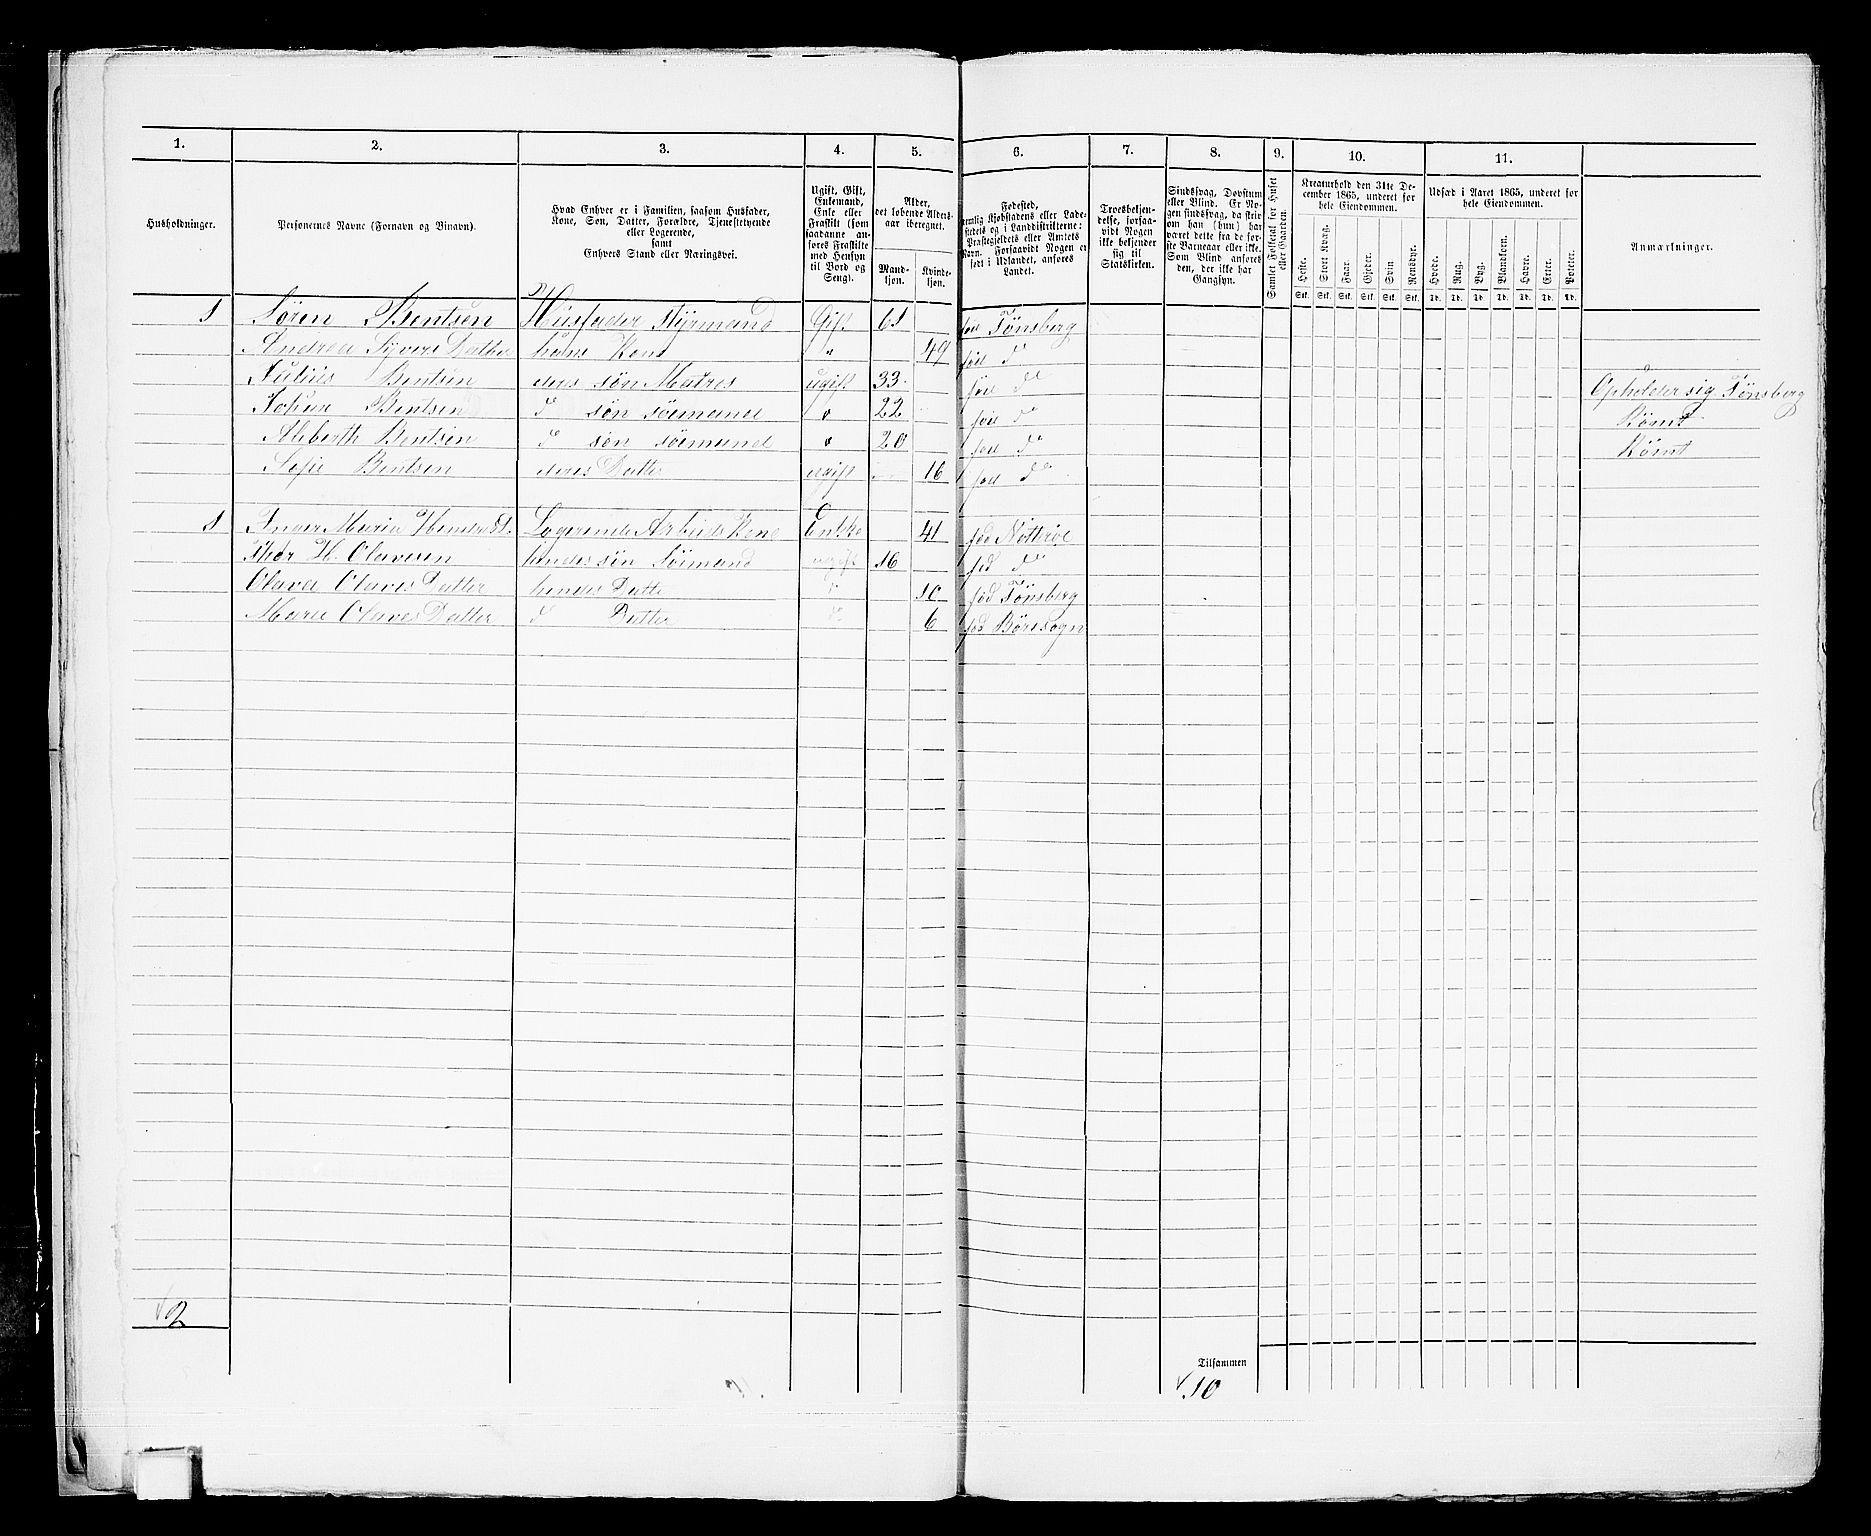 1. 2. 3. 4. 5. 6. 7. 8. 9. 10. 11.
Husholdninger.
Personernes Navne (Fornavn og Binavn).
Hvad Enhver er i Familien, saasom Husfader,
Kone, Søn, Datter, Forældre, Tjenestetyende
eller Logerende,
samt
Enhvers Stand eller Næringsvei.
Ugift, Gift,
Enkemand,
Enke eller
Fraskilt (som
saadanne an-
føres Fraskilte
med Hensyn
til Bord og
Seng).
Alder,
det løbende Alders-
aar iberegnet.
Mand-
kjøn.
Kvinde-
kjøn.
Fødested,
nemlig Kjøbstadens eller Lade-
stedets og i Landdistrikterne:
Præstegjeldets eller Amtets
Navn. Forsaavidt Nogen er
født i Udlandet, anføres
Landet.
Troesbekjen-
delse, forsaa-
vidt Nogen
ikke bekjender
sig til
Statskirken.
Sindssvag, Døvstum
eller Blind. Er No-
gen sindssvag, da skrives
om han (hun) har
været dette fra de før-
ste Barneaar eller ikke.
Som Blind anføres
den, der ikke har
Gangsyn.
Samlet Folketal for Huset
eller Gaarden.
Kreaturhold den 31te De-
cember 1865, underet for
hele Eiendommen.
Heste. Stort Kvæg. Faar. Gjeder. Svin Rensdyr.
Stk. Stk. Stk. Stk. Stk. Stk.
Udsæd i Aaret 1865, underet for
hele Eiendommen.
Hvede. Rug. Byg. Blandkorn. Havre. Erter. Poteter.
Td. Td. Td. Td. Td. Td. Td.
Anmærkninger.
1 Søren Bentsen Husfader Styrmand Gift 61 fød Tønsberg
Andrea Syvers Datter hans Kone " 49 fød do
Julius Bentsen deres søn Matros ugift 33 fød do Opholder sig Tønsberg
Johan Bentsen do søn sømand " 22 fød do Rømt
Alberth Bentsen do søn sømand " 20 fød do Rømt
Sofie Bentsen deres Datter ugift 16 fød do
1 Inger Maria Logerende Arbeids Kone Enke 41 fød Nøtterøe
Thor H. Olavesen hendes søn Sømand ugift 16 fød do
Olava Olaves Datter hendes Datter do 10 fød Tønsberg
Maren Olaves Datter do Datter do 6 fød Børresogn
2
Tilsammen
10